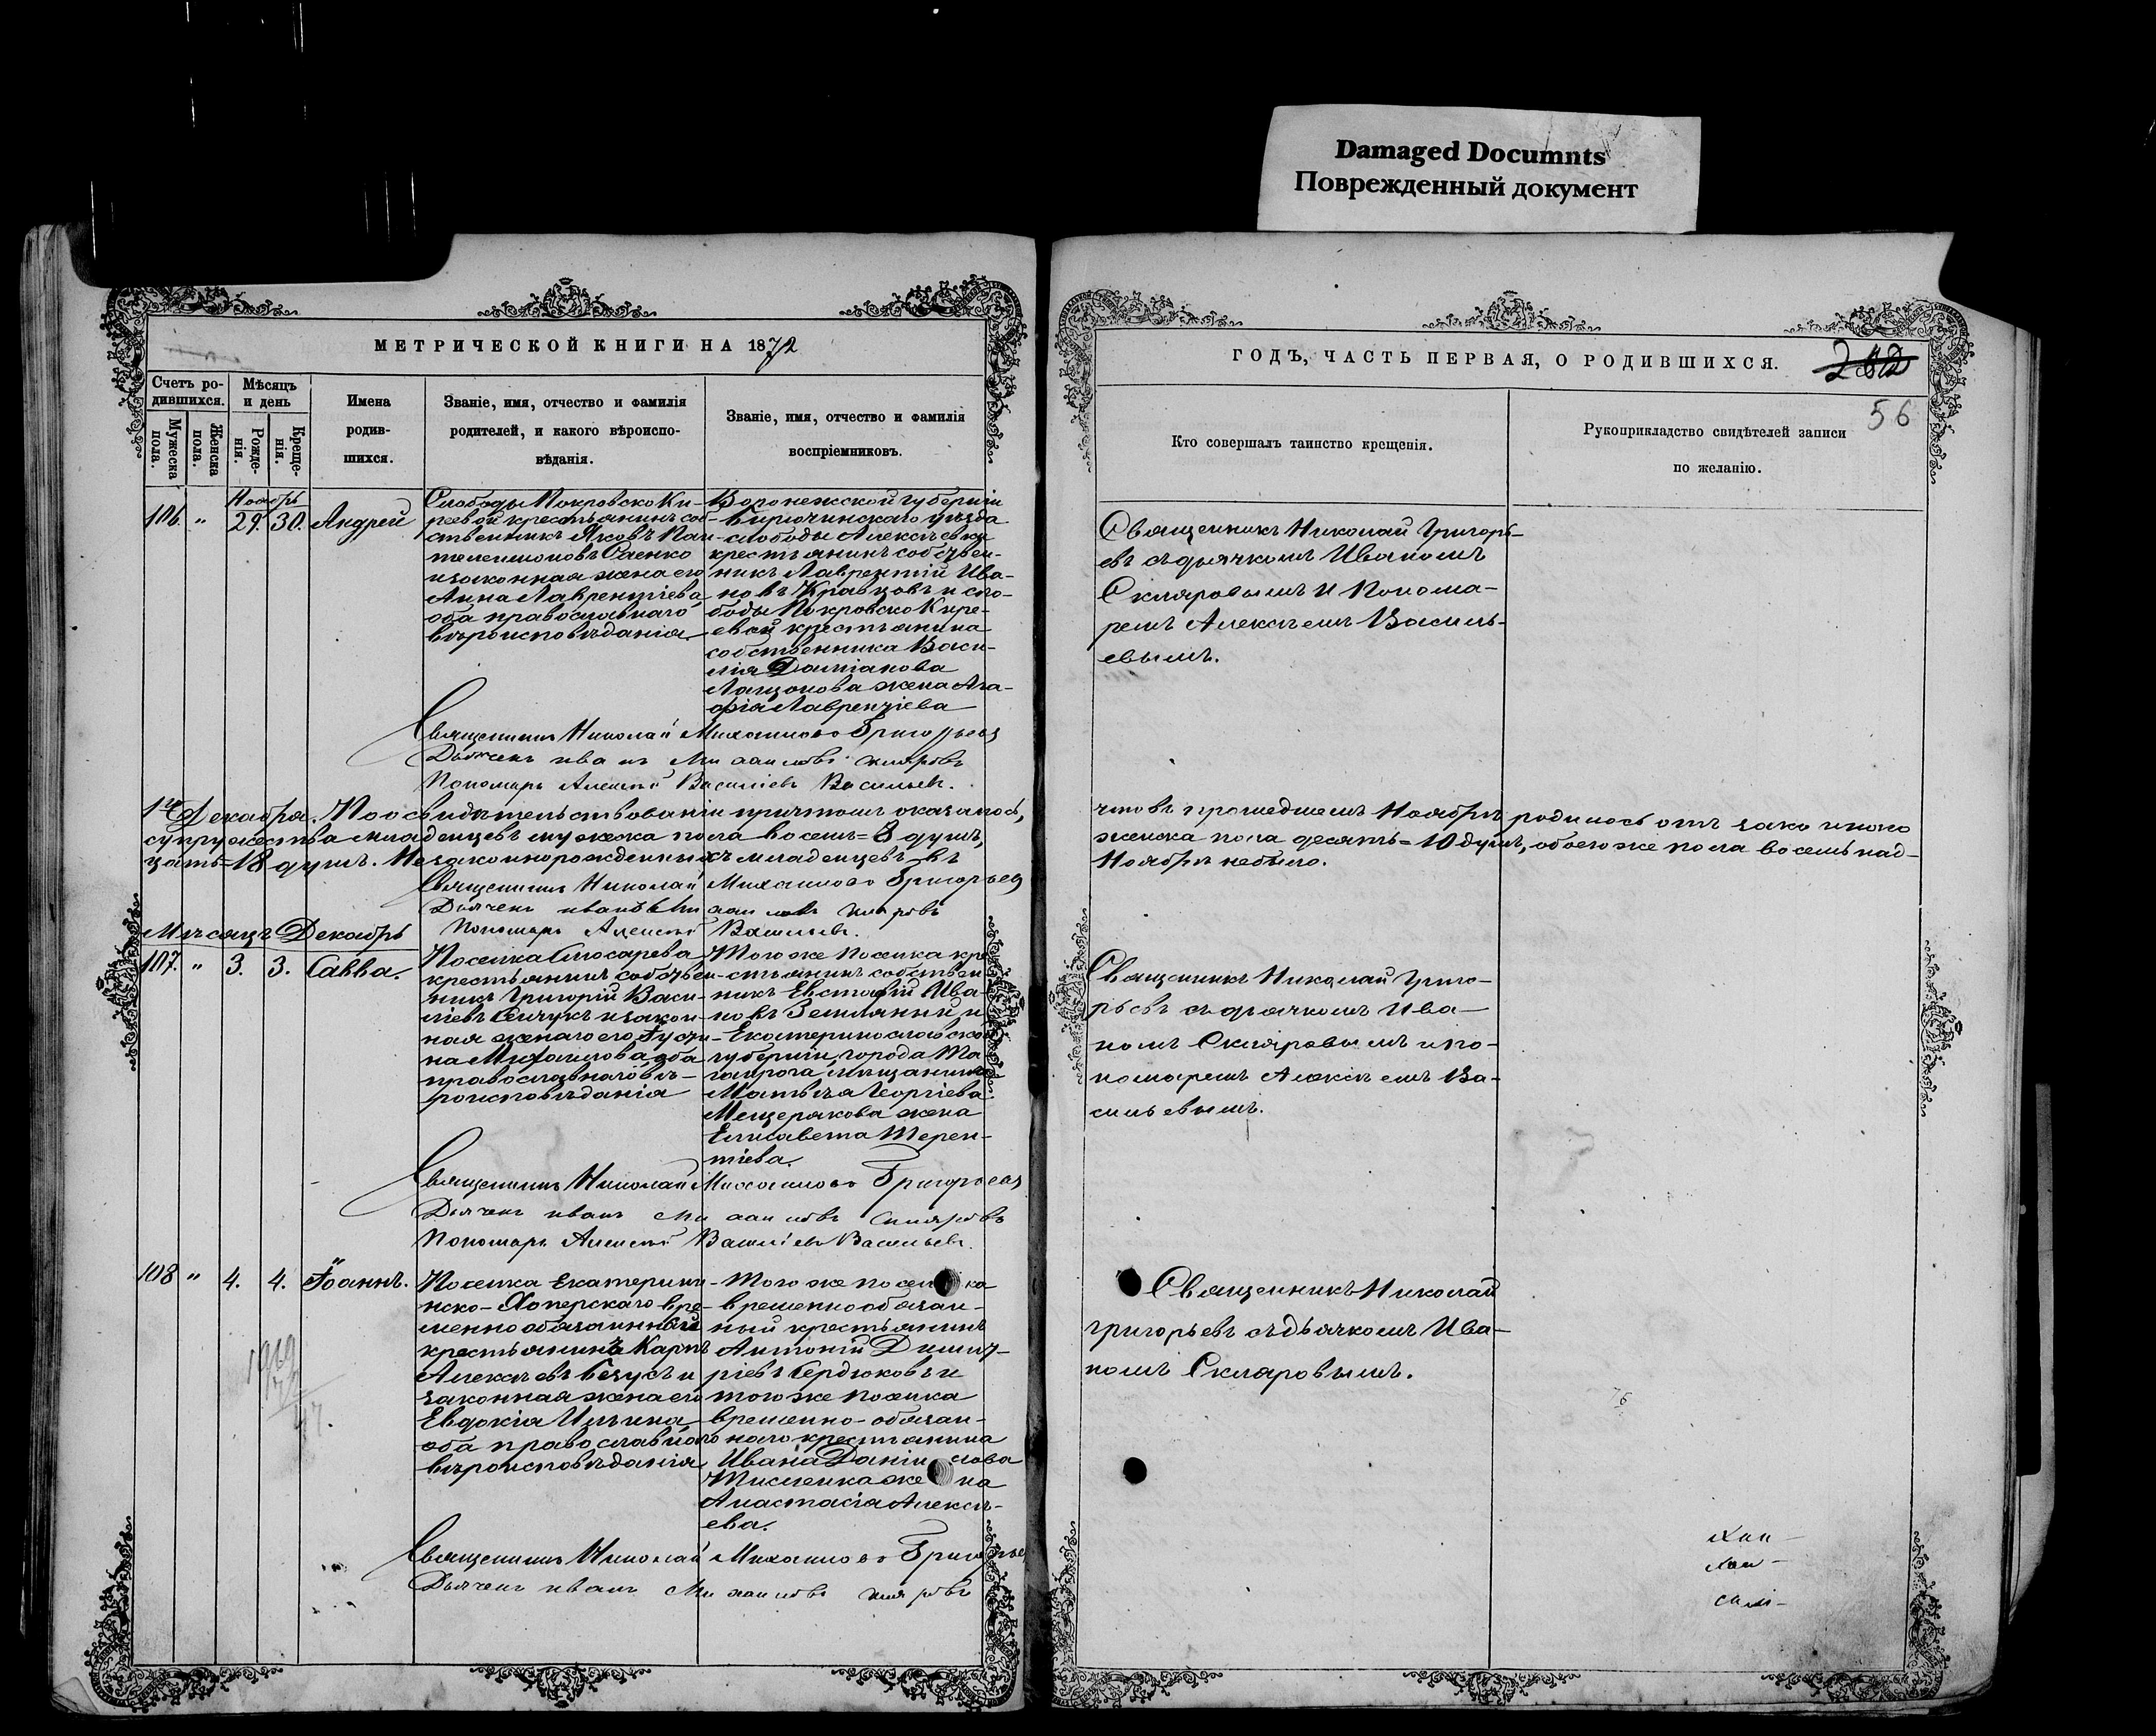 Damaged Documnts
Поврежденный документ
МЕТРИЧЕСКОЙ КНИГИ НА 1872
Счетъ ро-
дившихся.
Мужеска пола.
Женска пола.
Мѣсяцъ
и день
Рожде-
нія.
Креще-
нія.
Имена
родив-
шихся.
Званіе, имя, отчество и фамилія
родителей, и какого вѣроиспо-
вѣданія.
Званіе, имя, отчество и фамилія
воспріемниковъ.
Ноябрь
106. " 29. 30. Андрей
Слободы Покровско Ки-
реевой крестьянинъ соб-
ственникъ Яковъ Пан-
телеимоновъ
и законная жена его
Анна Лаврентіева
оба православнаго
вѣроисповѣданія
Воронежской губерніи
Бирючинскаго уѣзда
слободы Алексѣевки
крестьянинъ собствен-
никъ Лаврентій Ива-
новъ Кравцовъ и сло-
боды Покровско Кире-
евой крестьянина
собственника Васи-
лія Даміанова
жена Ага-
фія Лаврентіева
Священникъ Николай Михаиловъ Григорьевъ
Дьячекъ иванъ Михаиловъ Скляровъ
Пономарь Алексѣй Василіевъ Васильевъ.
1го Декабря. По освидѣтельствованіи причтомъ оказалось,
супружества младенцевъ мужска пола восемь = 8 душъ,
цать = 18 душъ. Незаконнорожденныхъ младенцевъ въ
Священникъ Николай Михаиловъ Григорьевъ
Дьячекъ иванъ Михаиловъ Скляровъ
Пономарь Алексѣй Васильевъ.
Мѣсяцъ Декабрь
107. " 3. 3. Савва.
Поселка Слюсарева
крестьянинъ собствен-
никъ Григорій Васи-
ліевъ и закон-
ная жена его Іусти-
на Михаилова оба
православнаго вѣ-
роисповѣданія
Того же поселка кре-
стьянинъ собствен-
никъ Евстафій Ива-
новъ Земляный и
Екатеринославской
губерніи, города Та-
ганрога мѣщанина
Матвѣя Георгіева
Мещерякова жена
Елисавета Терен-
тіева.
Священникъ Николай Михаиловъ Григорьевъ
Дьячекъ иванъ Михаиловъ Скляровъ
Пономарь Алексѣй Василіевъ Васильевъ.
108 " 4. 4. Іоаннъ.
Поселка Екатерини-
нско-Хоперскаго вре-
менно обязанный
крестьянинъ Карпъ
Алексѣевъ Безусъ и
законная жена его
Евдокія Ильина,
оба православнаго
вѣроисповѣданія
Того же поселка
временно обязан-
ный крестьянинъ
Антоній Димит-
ріевъ Сердюковъ и
того же поселка
временно-обязан-
наго крестьянина
Ивана Даниилова
жена
Анастасія Алексѣ-
ева.
Священникъ Николай Михаиловъ Григорьев
Дьячекъ иванъ Михаиловъ Скляровъ
ГОДЪ, ЧАСТЬ ПЕРВАЯ, О РОДИВШИХСЯ.
56
Кто совершалъ таинство крещенія.
Рукоприкладство свидѣтелей записи
по желанію.
Священникъ Николай Григорь-
евъ съ дьячкомъ Иваномъ
Скляровымъ и Понома-
ремъ Алексѣемъ Василь-
евымъ.
что въ прошедшемъ Ноябрѣ родилось отъ законнаго
женска пола десять = 10 душъ, обоего же пола восемьнад-
Ноябрѣ небыло.
Священникъ Николай Григо-
рьевъ съ дьячкомъ Ива-
номъ Скляровымъ и по-
номаремъ Алексѣемъ Ва-
сильевымъ.
Священникъ Николай
Григорьевъ съ дьячкомъ Ива-
номъ Скляровымъ.